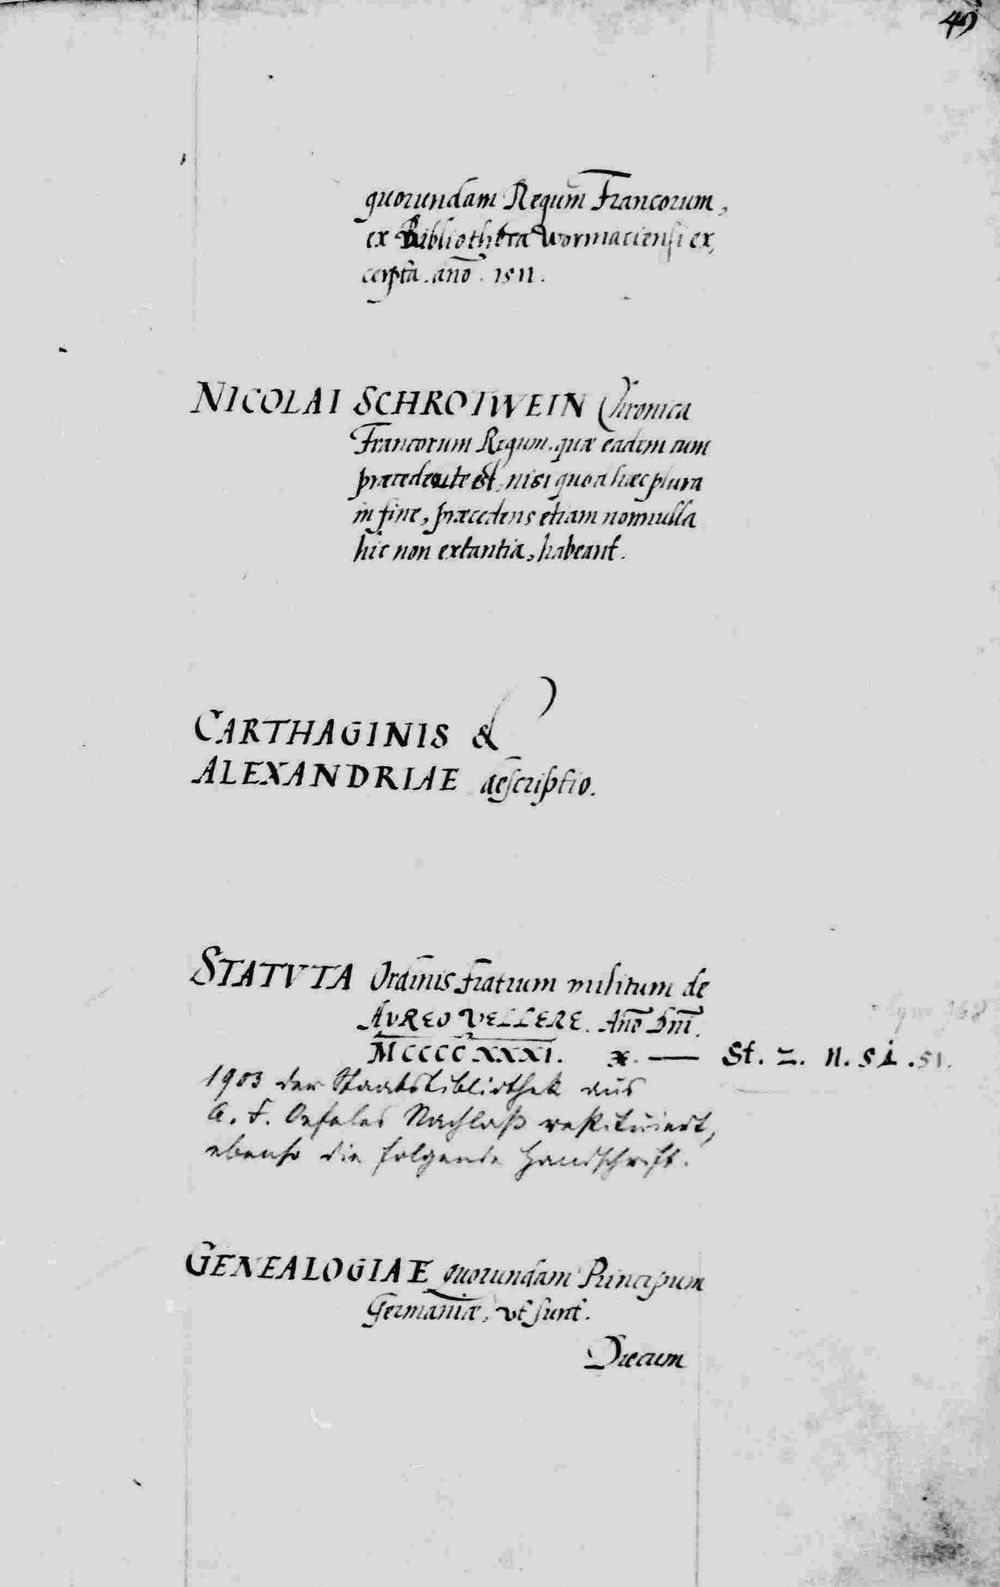 49
quorundam Regum Francorum,
ex Bibliotheca Wormaciensi ex,
cerpta. año. 1511.
NICOLAI SCHROTWEIN Chronica
Francorum Regum. quæ eadem cum
præcedente est, nisi quod hæc plura
in fine, præcedens etiam nonnulla
hic non extantia, habeant.
CARTHAGINIS &
ALEXANDRIAE descriptio.
STATVTA Ordinis Fratrum militum de
AVREO VELLERE. Año Dni.
MCCCCXXXI. x. — St. 2. N. 51. 51.
1903 der Staatsbibliothek aus
A. F. Oefeles Nachlaß restituiert,
ebenso die folgende Handschrift.
GENEALOGIAE quorundam Principum
Germaniæ, vt sunt.
Ducum